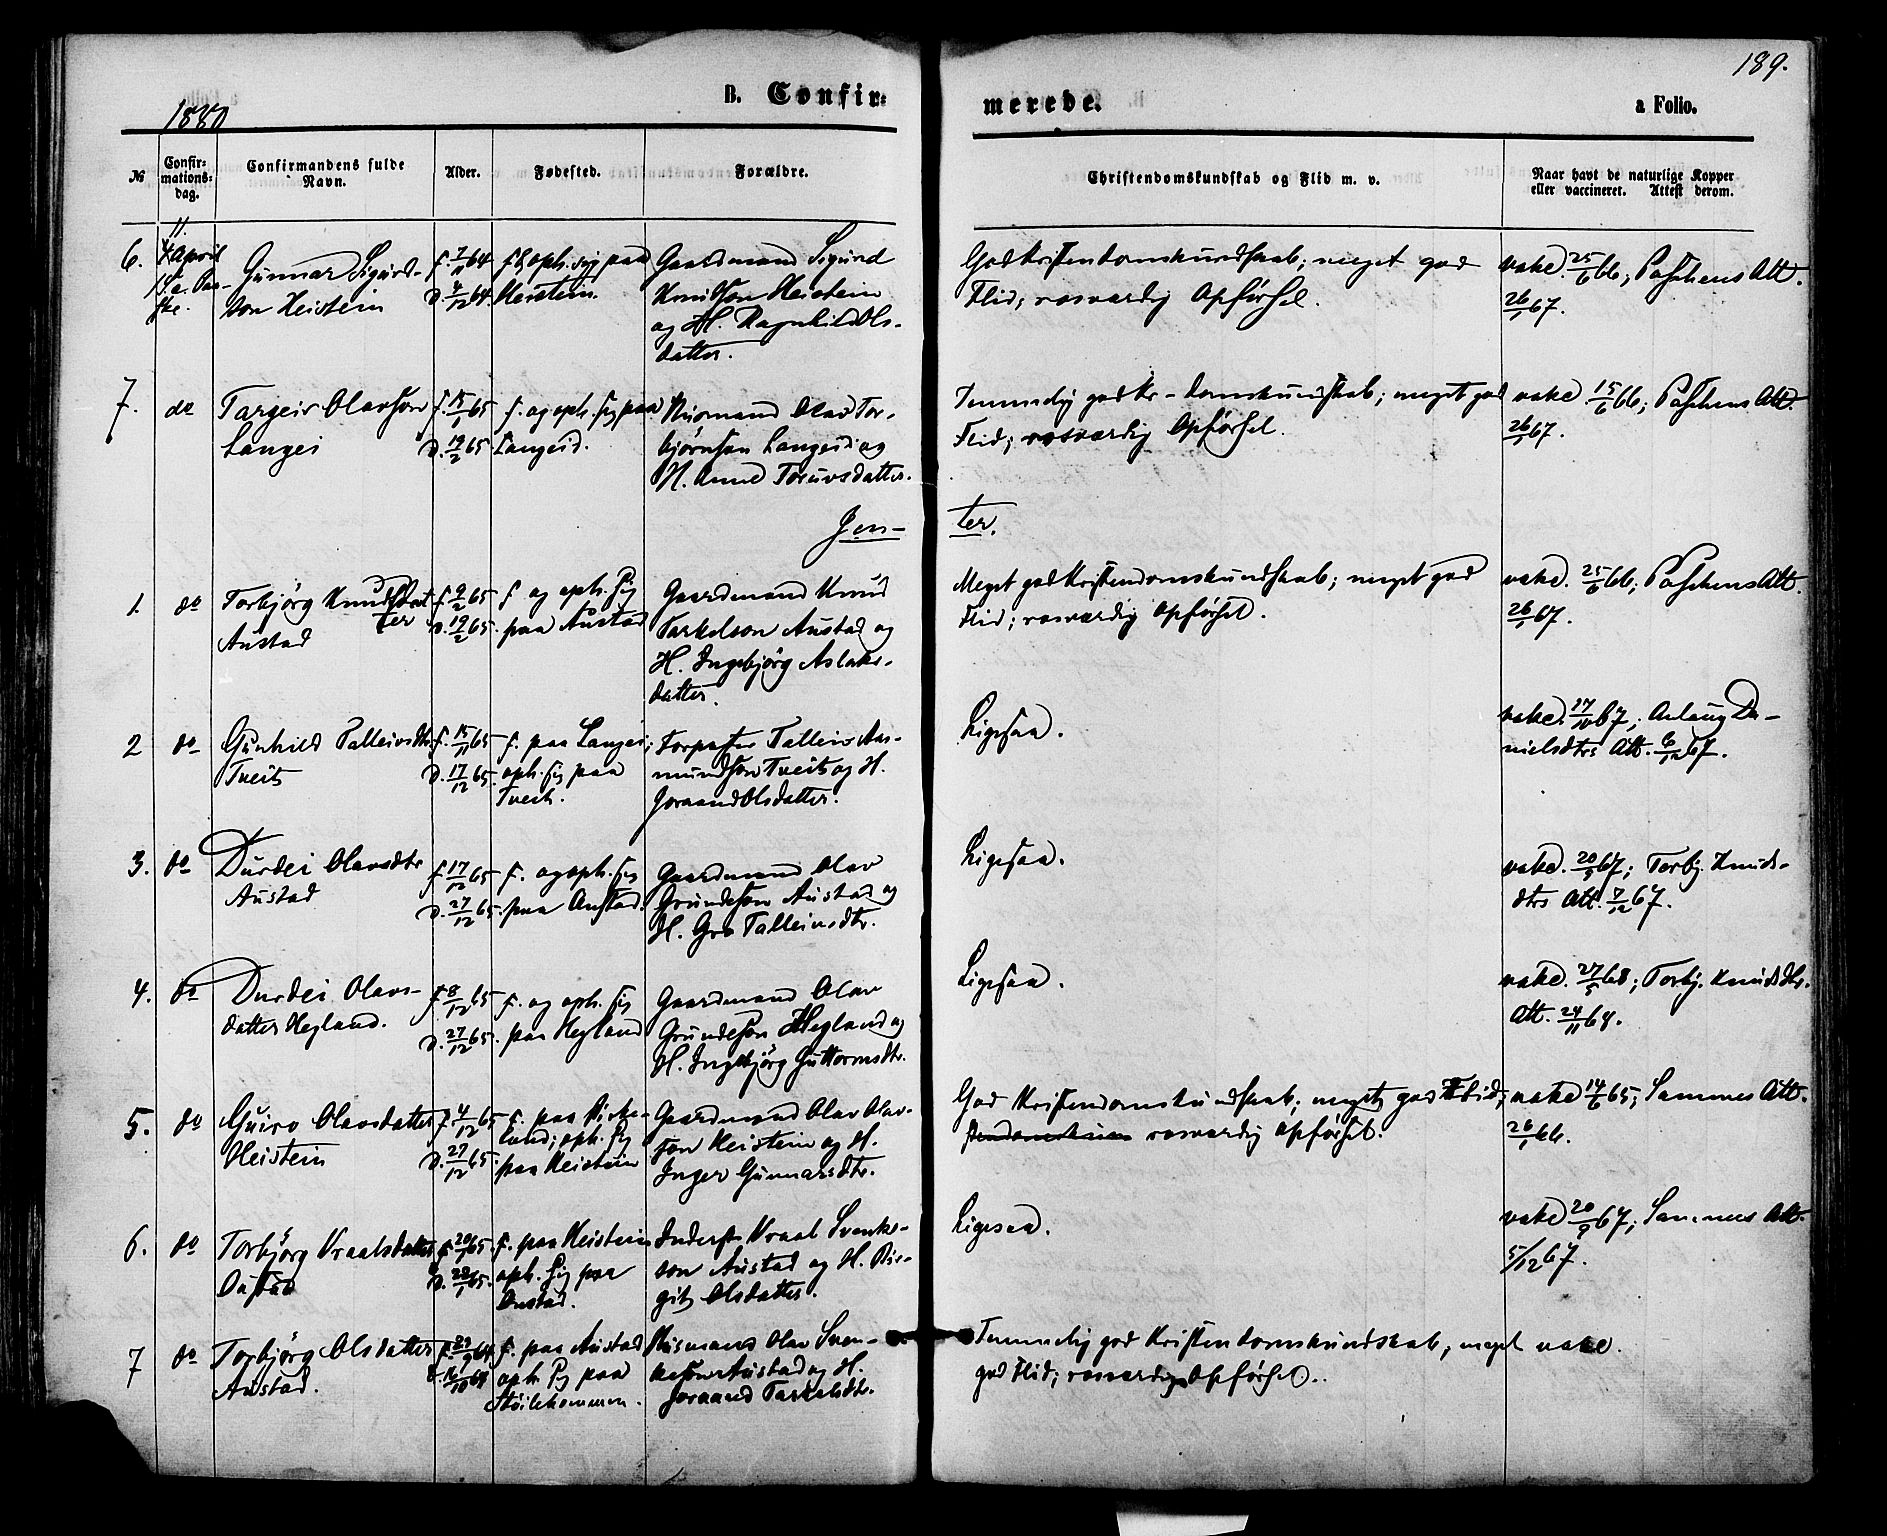 189.
1880
B. Confir-
merede.
a Folio.
№
Confir-
mations-
dag.
Confirmandens fulde
Navn.
Alder.
Fødested.
Forældre.
Christendomskundskab og Flid m. v.
Naar havt de naturlige Kopper
eller vaccineret. Attest derom.
6.
11.
April
Gunnar Sigurd-
son Heistein
f. 7/11 64
d. 4/12 64.
f. & oph. sig paa
Heistein.
Gaardmand Sigurd
Knudson Heistein
og H. Ragnhild Ols-
datter.
God Kristendomskundskab; meget god
Flid; rosværdig Opførsel.
vake. 25/6 66; Paschens Att.
26/1 67.
7.
do
Targeir Olavson
Langei
f. 15/1 65
d. 19/2 65
f. og oph. sig paa
Langeid.
Husmand Olav Tor-
bjørnson Langeid og
H. Anne Toruvsdatter.
Temmelig god Kr-domskundskab; meget god
Flid; rosværdig Opførsel.
vake 15/6 66; Paschens Att.
26/1 67.
Jen-
ter.
1.
do
Torbjörg Knudsdat
ter
Austad
f. 9/2 65
d. 19/2 65.
f og oph. sig
paa Austad
Gaardmand Knud
Tarkelson Austad og
H. Ingebjörg Aslaks-
datter.
Meget god Kristendomskundskab; meget god
Flid; rosværdig Opførsel.
vake. 25/6 66; Paschens Att.
26/1 67.
2
do
Gunhild Talleivsdtr
Tveit
f. 15/11 65
d. 17/12 65.
f. paa Langei;
oph. sig paa
Tveit.
Talleiv Aas-
mundson Tveit og H.
Joraand Olsdatter.
Ligesaa.
vake. 17/10 67; Anlaug Da-
nielsdtrs Att. 6/12 67.
3.
do
Durdei Olavsdtr
Austad
f. 17/12 65
d. 27/12 65.
f. og oph. sig
paa Austad.
Gaardmand Olav
Grundeson Austad og
H. Gro Talleivsdtr.
Ligesaa.
vake. 20/5 67; Torbj. Knuds-
dtrs Att. 7/12 67.
4.
do
Durdei Olavs-
datter Hegland.
f. 8/12 65
d. 27/12 65.
f. og oph. sig
paa Hegland
Gaardmand Olav
Grundeson Hegland og
H. Ingebjörg Guttormsdtr.
Ligesaa.
vake. 27/5 68; Torbj. Knudsdtr.
Att. 24/11 68.
5.
do
Guro Olavsdatter
Heistein
f 4/12 65
d. 27/12 65.
f. paa
oph. sig
paa Heistein
Gaardmand Olav Olav-
son Heistein og H.
Inger Gunnarsdtr.
God Kristendomskundskab; meget god Flid;
rosværdig Opførsel.
vake 14/6 65; Sammes Att.
26/1 66.
6.
do
Torbjörg Vraalsdatter
Austad
f. 20/1 65.
d. 28/1 65.
f. paa Heistein
oph. sig paa
Austad.
Inderst Vraal Svenke-
son Austad og H. Bir-
git Olsdatter.
Ligesaa.
vake 20/9 67; Sammes Att.
5/12 67.
7
do
Torbjörg Olsdatter
Austad.
f. 23/9 64
d. 16/10 64
f. paa Austad
oph. sig paa
Husmand Olav Sven-
keson Austad og H.
Joraand Tarkelsdtr.
Temmelig god Kristendomskundskab; meget
god Flid; rosværdig Opførsel.
vake.